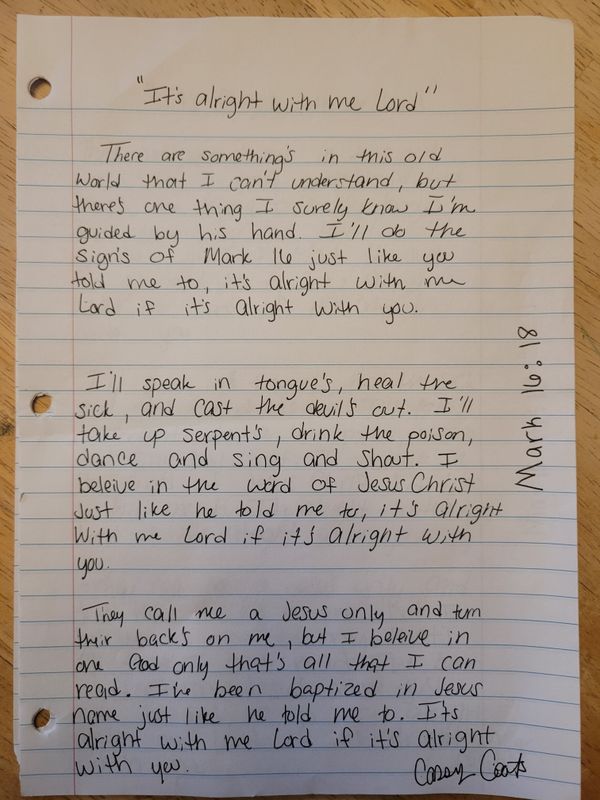 "It's alright with me Lord"
There are something's in this old
world that I can't understand, but
there's one thing I surely know I'm
guided by his hand. I'll do the
sign's of Mark 16 just like you
told me to, it's alright with me
Lord if it's alright with you.
I'll speak in tongue's, heal the
sick, and cast the devil's out. I'll
take up serpent's, drink the poison,
dance and sing and shout. I
beleive in the word of Jesus Christ
Just like he told me to, it's alright
with me Lord if it's alright with
you.
Mark 16:18
They call me a Jesus only and turn
their back's on me, but I beleive in
one God only that's all that I can
read. I've been baptized in Jesus
name just like he told me to. It's
alright with me Lord if it's alright
with you.
Casey Coats